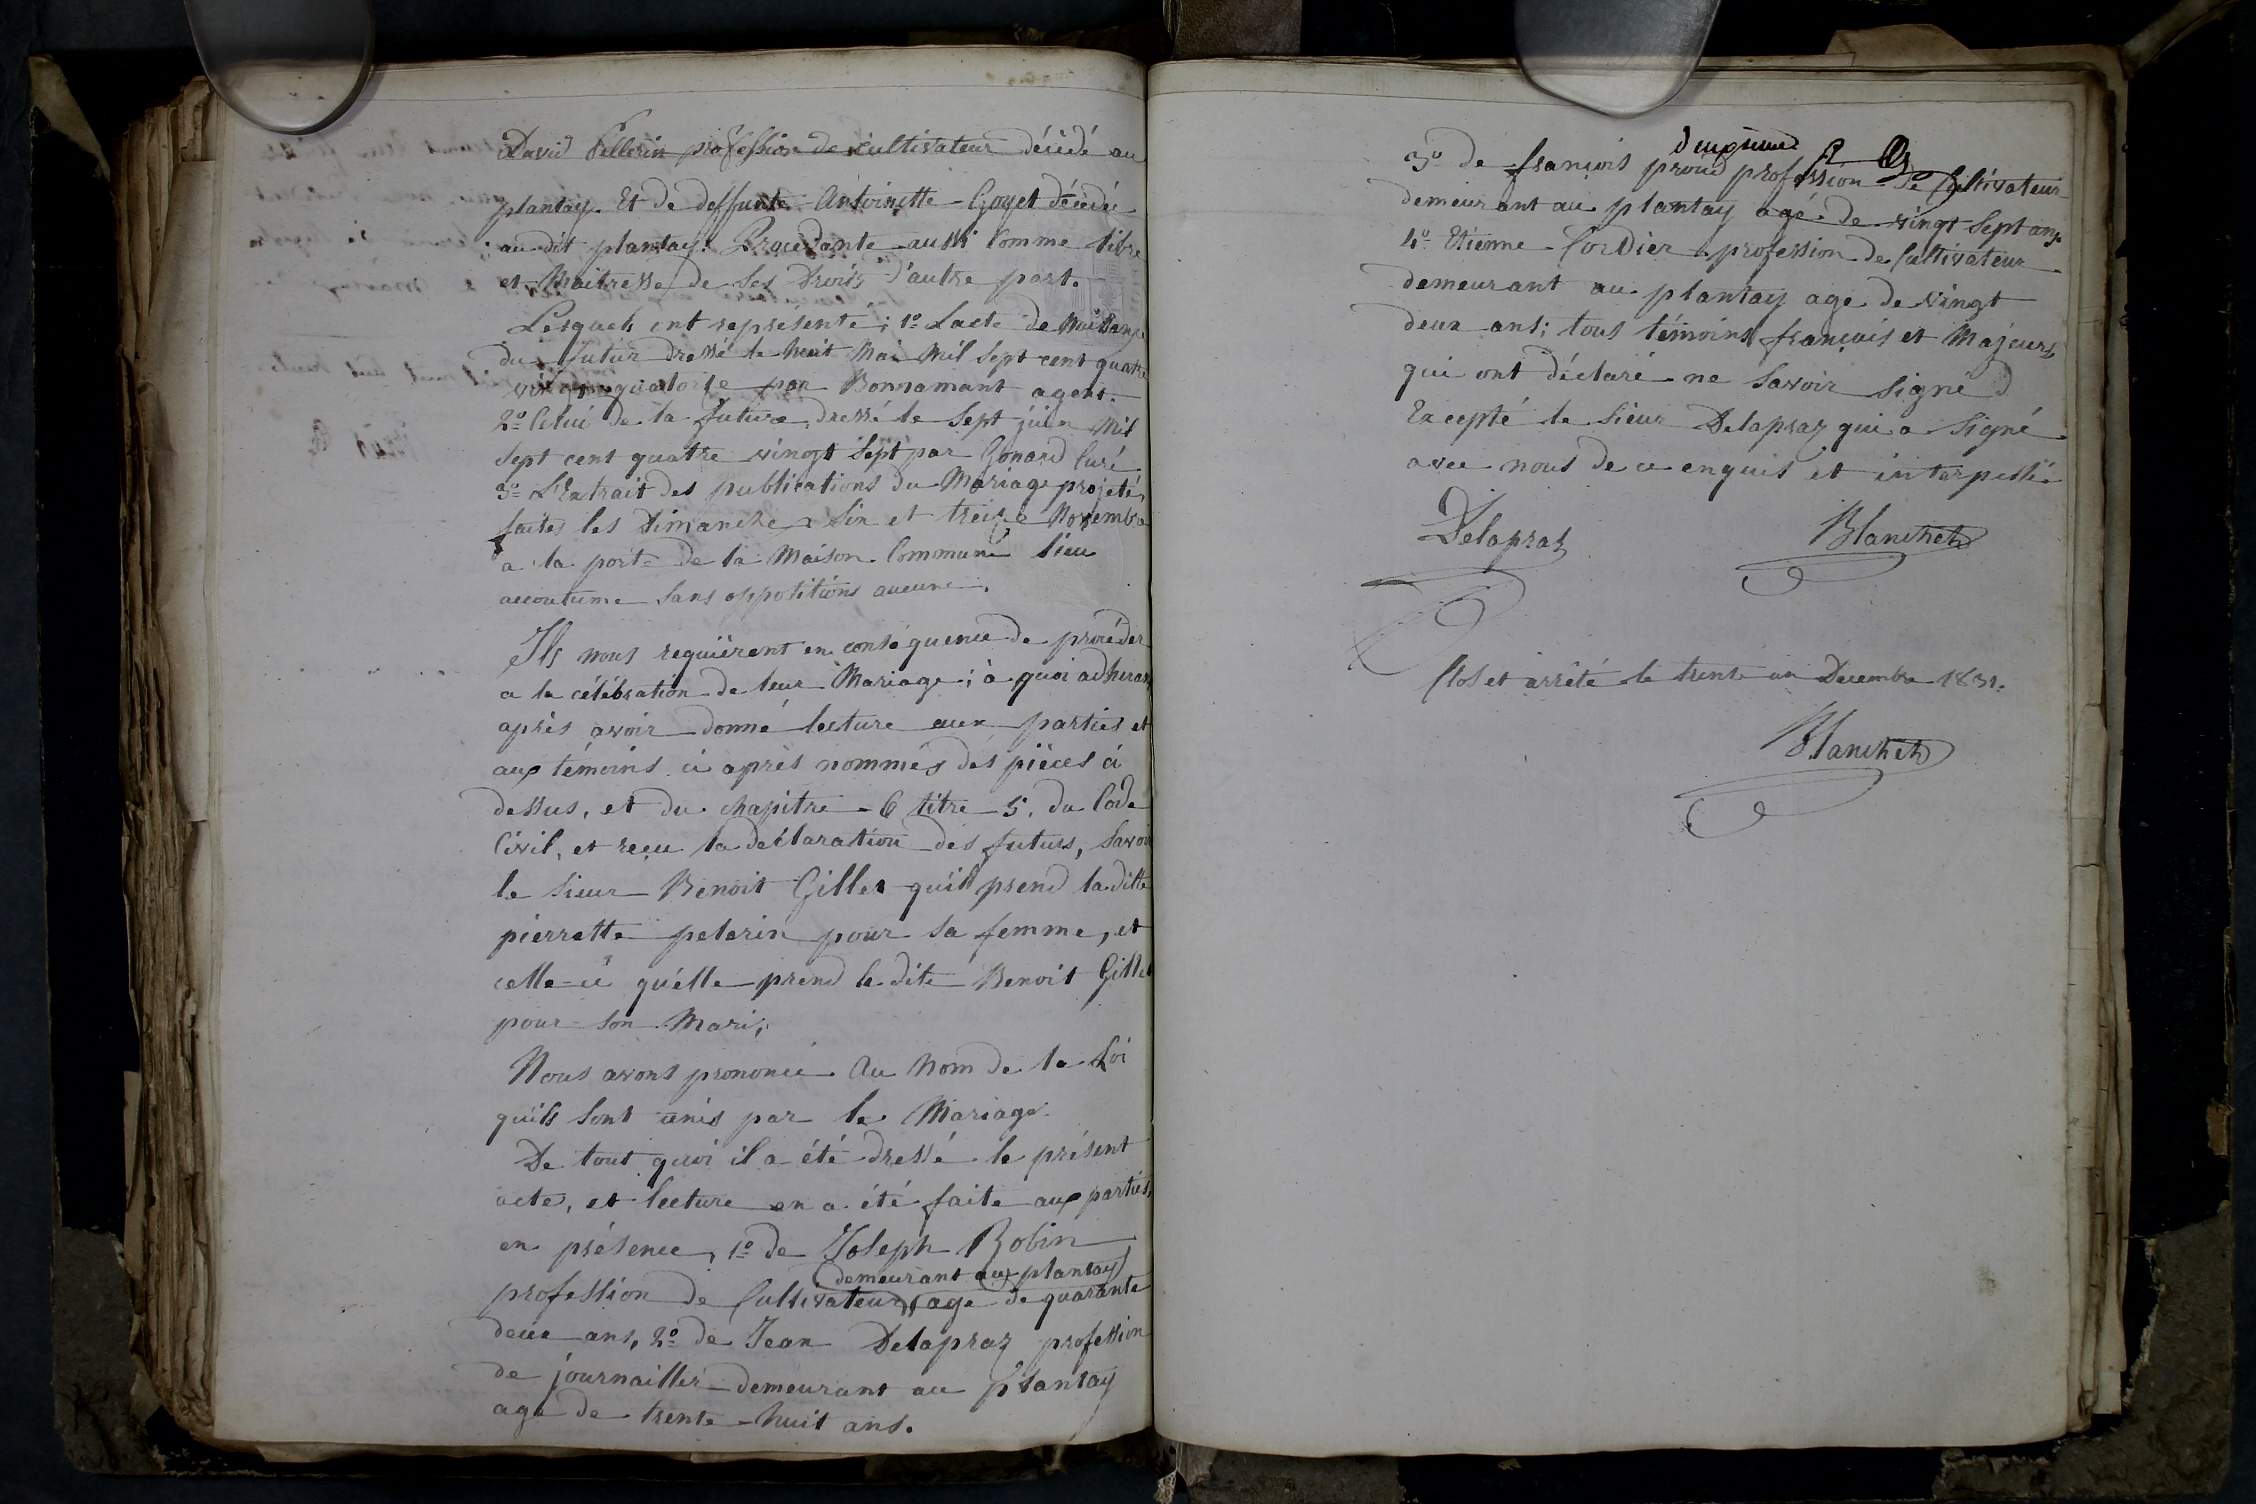 David Pellerin profession de cultivateur décédé au
plantay. Et de deffunte Antoinette Goyet décédée
au dit plantay. Procédante aussi Comme libre
et Maitresse de Ses Droits d'autre part.
Lesquels ont représenté; 1º L'acte de Naissance
du futur dressé le huit Mai Mil Sept cent quatre
vingt quatorze par Bonnamant agent.
2º Celui de la future, dressé le Sept juin Mil
Sept cent quatre vingt Sept par Gonard Curé
3º L'Extrait des publications du Mariage projeté,
faites les Dimanche Six et treize Novembre
a la porte de la Maison Commune lieu
accoutumé Sans oppotitions aucune.
Ils nous requièrent en conséquence de procéder
a la célébration de leur Mariage; à quoi adhérant
après avoir donné lecture aux parties et
aux témoins ci après nommés des pièces ci
dessus, et du chapitre 6 titre 5. du Code
Civil, et reçu la déclaration des futurs, Savoir
le Sieur Benoit Gillet qu'il prend la ditte
pierrette pelerin pour Sa femme, et
celle-ci qu'elle prend le dite Benoit Gillet
pour Son Mari;
Nous avons prononcé Au Nom de la Loi
qu'ils Sont unis par le Mariage.
De tout quoi il a été dressé le présent
acte, et lecture en a été faite aux parties,
en présence, 1º de Joseph Robin
(demeurant au plantay)
profession de Cultivateur, age de quarante
deux ans, 2º de Jean Delapraz profession
de journaillier demeurant au Plantay
age de trente-huit ans.
3º de françois proud profession de Cultivateur
demeurant au plantay agé de vingt Sept ans
4º Etienne Cordier profession de Cultivateur
demeurant au plantay age de vingt
deux ans; tous témoins français et Majeurs
qui ont déclaré ne Savoir Signé
Excepté le Sieur Delapraz qui a Signé
avec nous de ce enquis et interpellé
Delapraz
Blanchet
Clos et arrêté le trente un Decembre 1831.
Blanchet